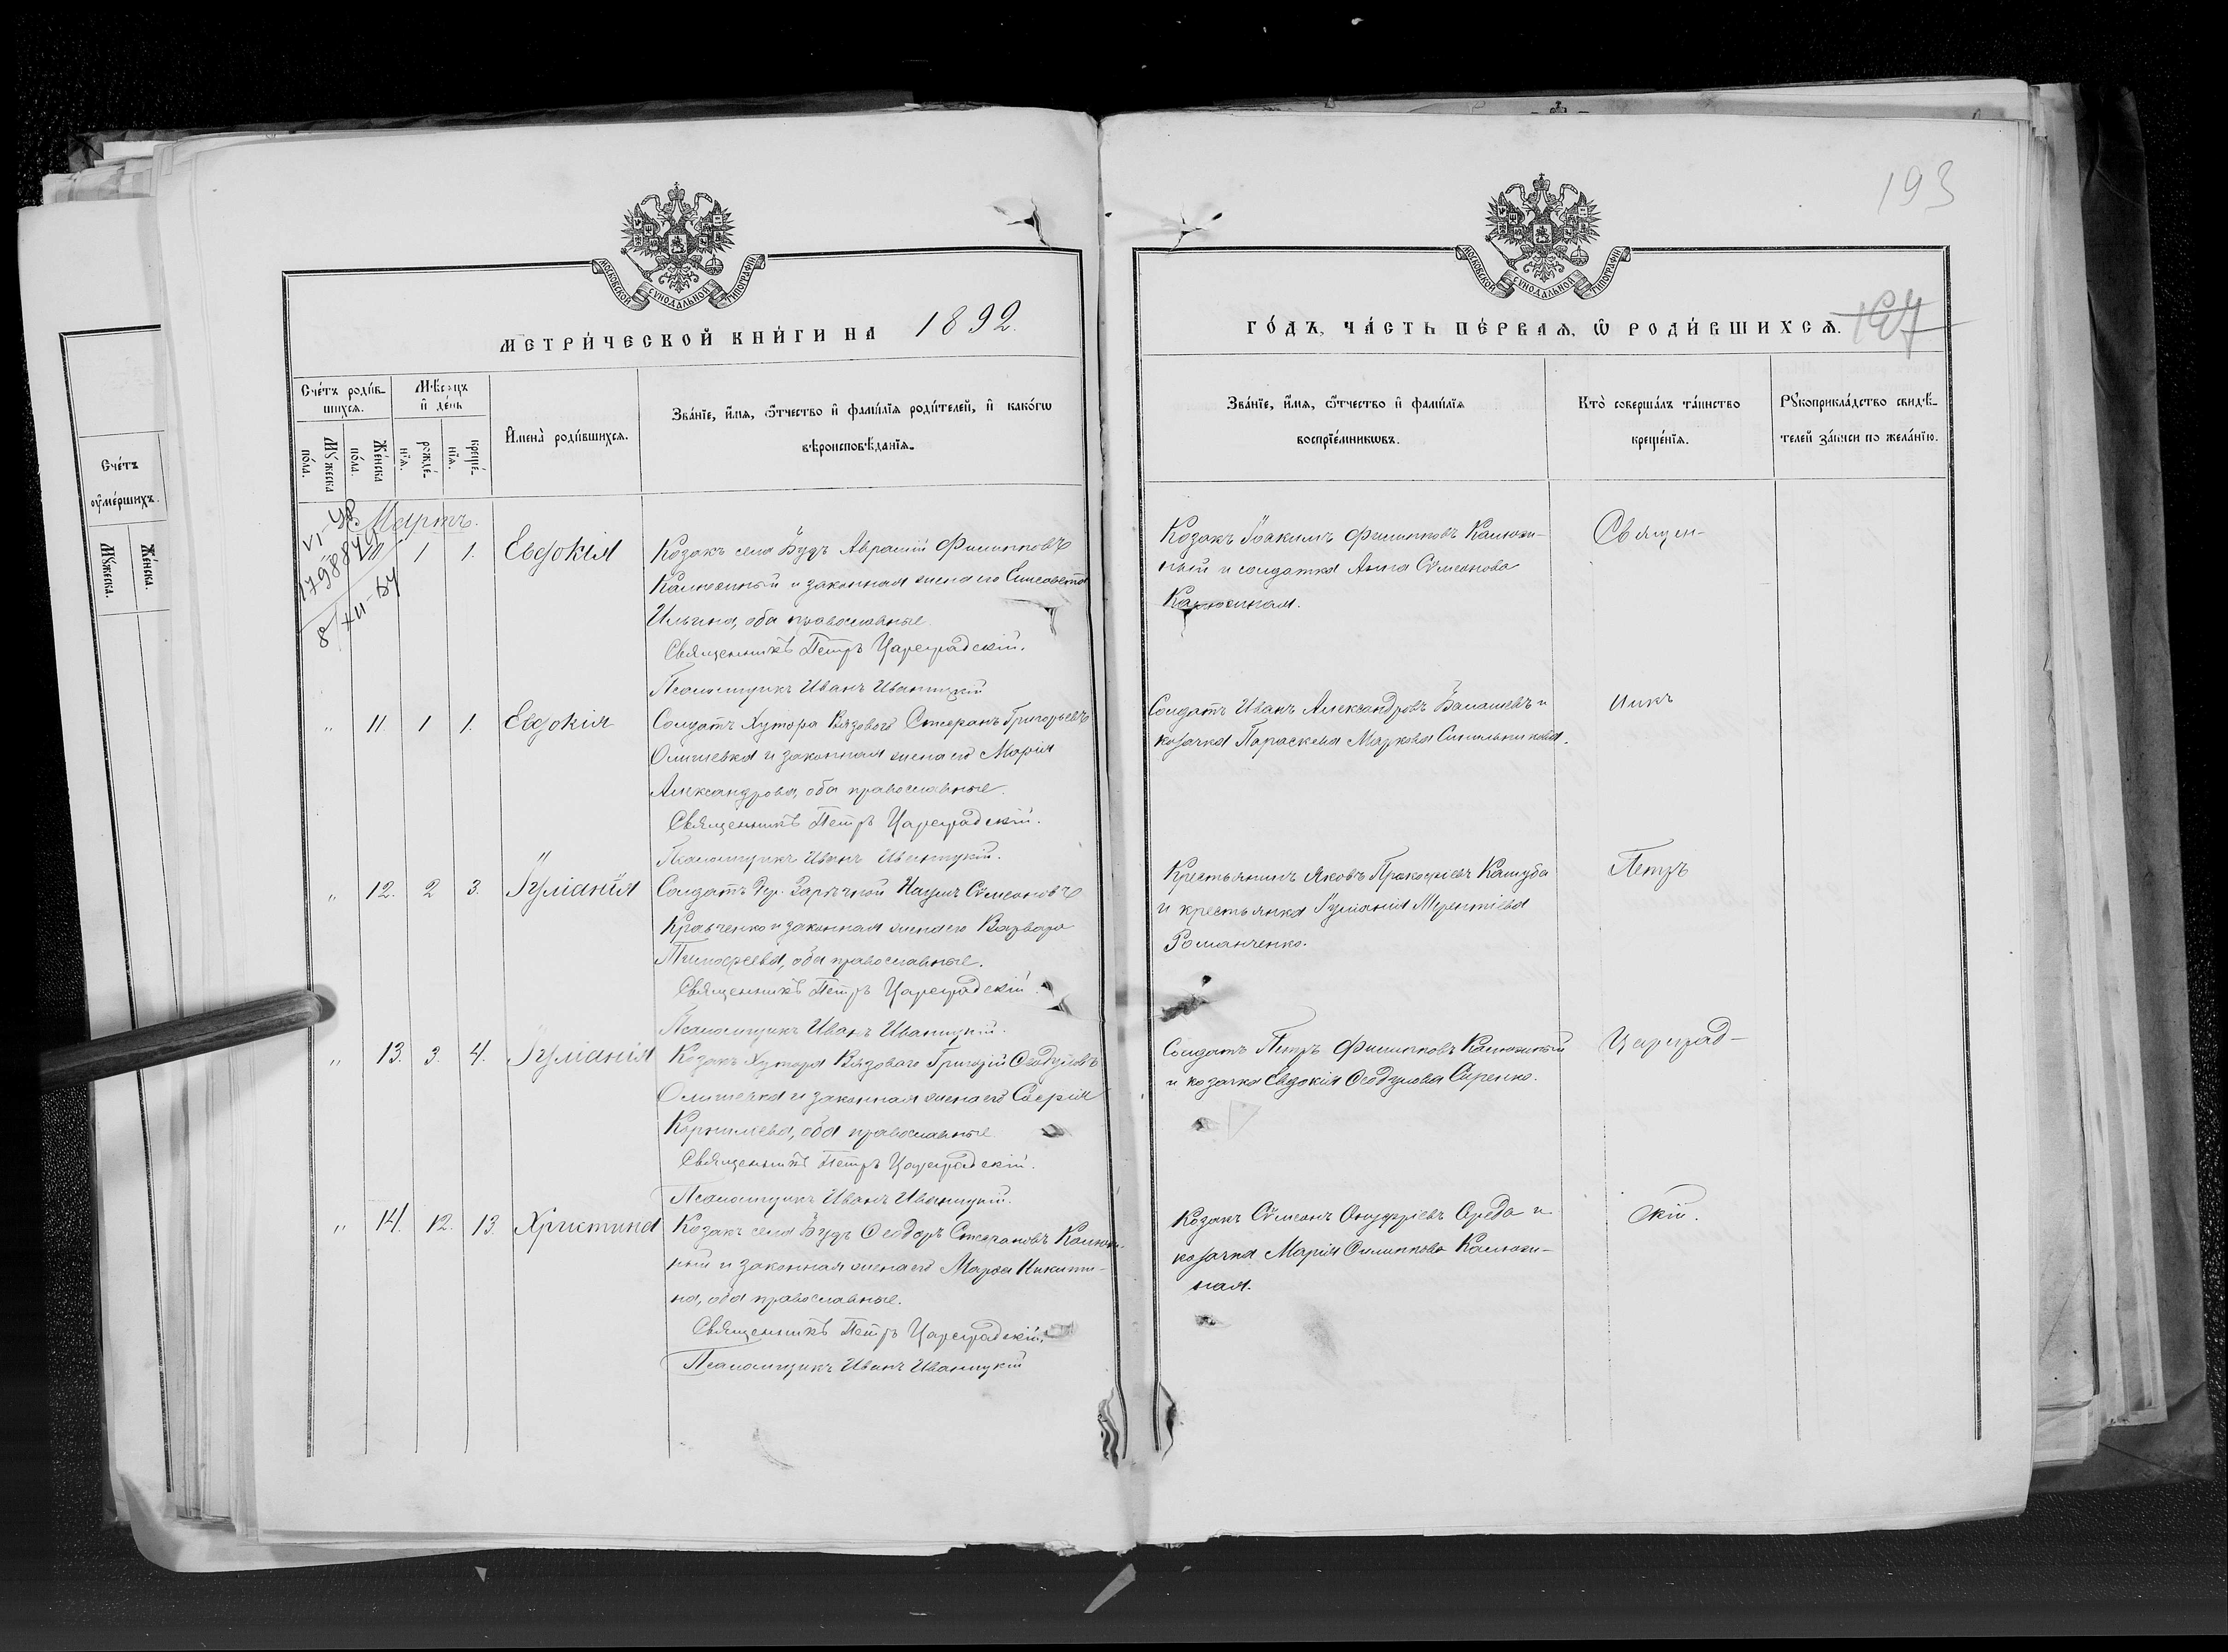 193
МОСКОВСКОЙ СѴНОДАЛЬНОЙ ТИПОГРАФІИ
МОСКОВСКОЙ СѴНОДАЛЬНОЙ ТИПОГРАФІИ
МЕТРИ́ЧЕСКОЙ КНИ́ГИ НА 1892.
ГО́ДЪ, ЧА́СТЬ ПЕ́РВАЯ, Ѿ РОДИ́ВШИХСЯ.
Сче́тъ роди́в-
шихся.
Мѣсяцъ
и де́нь
Мꙋ́жеска
по́ла.
Же́нска
по́ла.
рожде́-
нїя.
креще́-
нїя.
Имена̀ роди́вшихся.
Зва́нїе, и́мя, ѻ́тчество и фами́лїя роди́телей, и како́гѡ
вѣроисповѣ́данїя.
Зва́нїе, и́мя, ѻ́тчество и фами́лїя
воспрїе́мникѡвъ.
Кто̀ соверша́лъ та́инство
креще́нїя.
Рꙋкоприкла́дство свидѣ́-
телей за́писи по жела́нїю.
Сче́тъ
оуме́ршихъ.
Мꙋ́жеска.
Же́нска.
Мартъ.
10 1 1. Евдокія
Козакъ села Будъ Аврамій Филипповъ
Калюжный и законная жена его Елисавета
Ильина, оба православные.
Священникъ Петръ Цареградскій.
Псаломщикъ Иванъ Иваницкій
Козакъ Іоакимъ Филипповъ Калюж-
ный и солдатка Анна Сѵмеонова
Калюжная.
Священ-
" 11. 1 1. Евдокія
Солдатъ Хутора Вязоваго Стефанъ Григорьевъ
Олишевка и законная жена его Марія
Александрова, оба православные.
Священникъ Петръ Цареградскій.
Псаломщикъ Иванъ Иваницкій.
Солдатъ Иванъ Александровъ Балашевъ и
козачка Параскева Маркова
никъ
" 12. 2 3. Іуліанія
Солдатъ Ху. Заречной Наумъ Сѵмеоновъ
Кравченко и законная жена его Варвара
Тимофеева, оба православные.
Священникъ Петръ Цареградскій.
Псаломщикъ Иванъ Иваницкій.
Крестьянинъ Яковъ Прокофіевъ Кашуба
и крестьянка Іуліанія Терентіева
Романченко.
Петръ
" 13. 3. 4. Іуліанія
Козакъ Хутора Вязоваго Григорій Ѳеодуловъ
и законная жена его Софія
Корнилева, оба православные.
Священникъ Петръ Цареградскій.
Псаломщикъ Иванъ Иваницкій.
Солдатъ Петръ Филипповъ Калюжный
и козачка Евдокія Ѳеодулова Сиренко.
Цареград-
" 14. 12. 13. Христина
Козакъ села Будъ Ѳеодоръ Стефановъ Калюж-
ный и законная жена его Марфа Никити-
на, оба православные.
Священникъ Петръ Цареградскій.
Псаломщикъ Иванъ Иваницкій
Козакъ Сѵмеонъ Онуфріевъ Середа и
козачка Марія Филиппова Калюж-
ная.
скій.